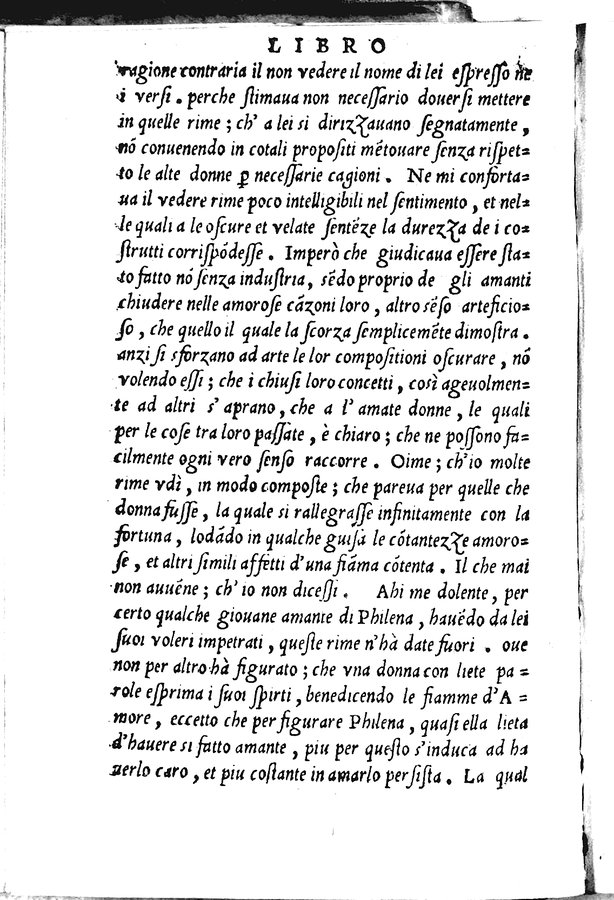 LIBRO
ragione contraria il non vedere il nome di lei eſpreſſo ne
i verſi . perche ſtimaua non neceſſario douerſi mettere
in quelle rime ; ch' a lei si dirizzauano ſegnatamente ,
nō conuenendo in cotali propoſiti mētouare ſenza riſpet=
to le alte donne ꝑ neceſſarie cagioni . Ne mi conforta=
ua il vedere rime poco intelligibili nel ſentimento , et nel=
le quali a le oſcure et velate ſentēze la durezza de i co=
ſtrutti corriſpōdeſſe . Imperò che giudicaua eſſere ſta=
to fatto nō ſenza induſtria, ſēdo proprio de gli amanti
chiudere nelle amoroſe cāzoni loro , altro ſēſo arteficio=
ſo , che quello il quale la ſcorza ſemplicemēte dimoſtra .
anzi ſi sforzano ad arte le lor compoſitioni oſcurare , nō
volendo eſſi ; che i chiuſi loro concetti , così ageuolmen=
te ad altri s' aprano , che a l' amate donne , le quali
per le coſe tra loro paſſate , è chiaro ; che ne poſſono fa=
cilmente ogni vero ſenſo raccorre . Oime ; ch'io molte
rime vdì , in modo compoſte ; che pareua per quelle che
donna fuſſe , la quale si rallegraſſe infinitamente con la
fortuna , lodādo in qualche guiſa le cōtantezze amoro=
ſe , et altri ſimili affetti d'una fiāma cōtenta . Il che mai
non auuēne ; ch' io non diceſſi . Ahi me dolente , per
certo qualche giouane amante di Philena , hauēdo da lei
ſuoi voleri impetrati , queſte rime n'hà date fuori . oue
non per altro hà figurato ; che vna donna con liete pa =
role eſprima i ſuoi ſpirti , benedicendo le fiamme d'A =
more , eccetto che per figurare Philena , quaſi ella lieta
d'hauere si fatto amante , piu per queſto s'induca ad ha
uerlo caro , et piu coſtante in amarlo perſiſta . La qual